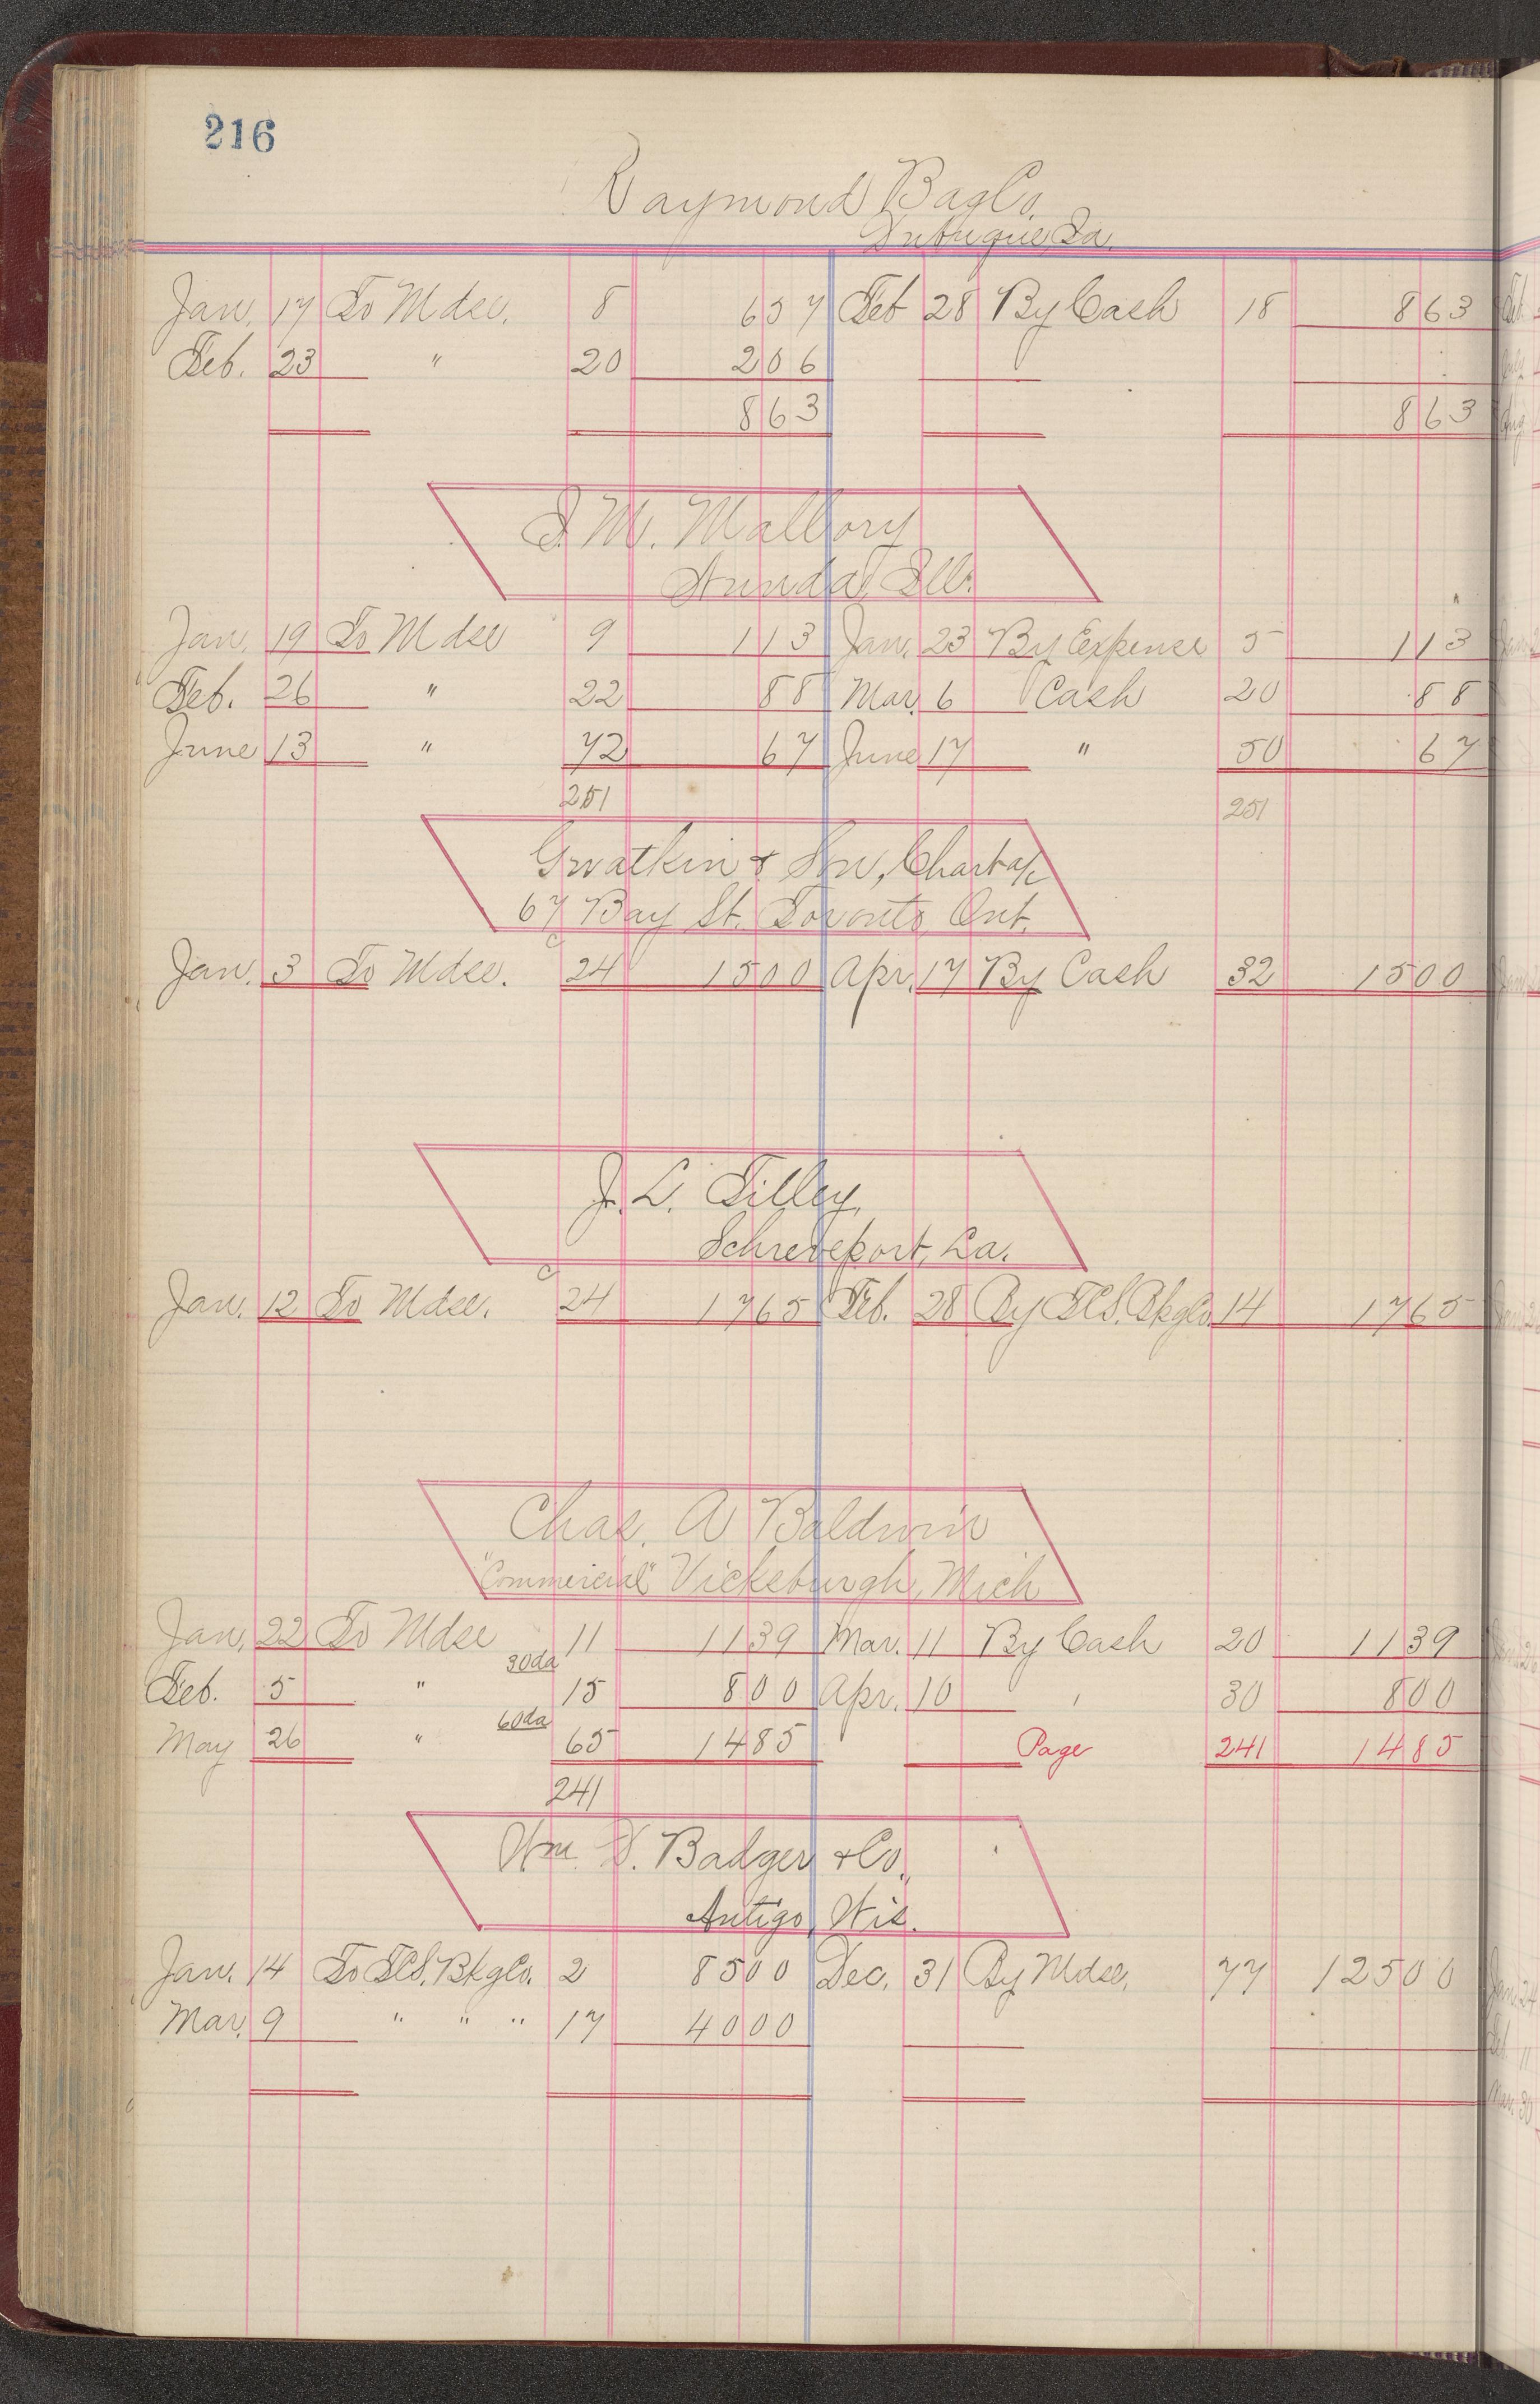 216
Raymond Bag Co.
Dubuque, Ia.
Jan. 17 To Mdse. 8 657 Feb 28 By Cash 18 863
Feb. 23 " 20 206
863 863
S. M. Mallory
Ill.
Jan. 19 To Mdse 9 113 Jan. 23 By Expense 5 113
Feb. 26 " 22 88 Mar. 6 Cash 20 88
June 13 " 72 67 June 17 " 50 67
251 251
Gwatkin & Son, Chart a/c
67 Bay St. Toronto Ont.
Jan. 3 To Mdse. C 24 1500 Apr. 17 By Cash 32 1500
J. L. Tilley,
Schreveport, La.
Jan. 12 To Mdse. C 24 1765 Feb. 28 By T.C.S. Bkg Co. 14 1765
Chas. A Baldwin
"Commercial" Vicksburgh, Mich
Jan. 22 To Mdse 11 1139 Mar. 11 By Cash 20 1139
Feb. 5 " 30da 15 800 Apr. 10 " 30 800
May 26 " 60da 65 1485 Page 241 1485
241
Wm. D. Badger & Co.
Antigo, Wis.
Jan. 14 To T.C.S. Bkg Co. 2 8500 Dec. 31 By Mdse. 77 12500
Mar. 9 " " " 17 4000